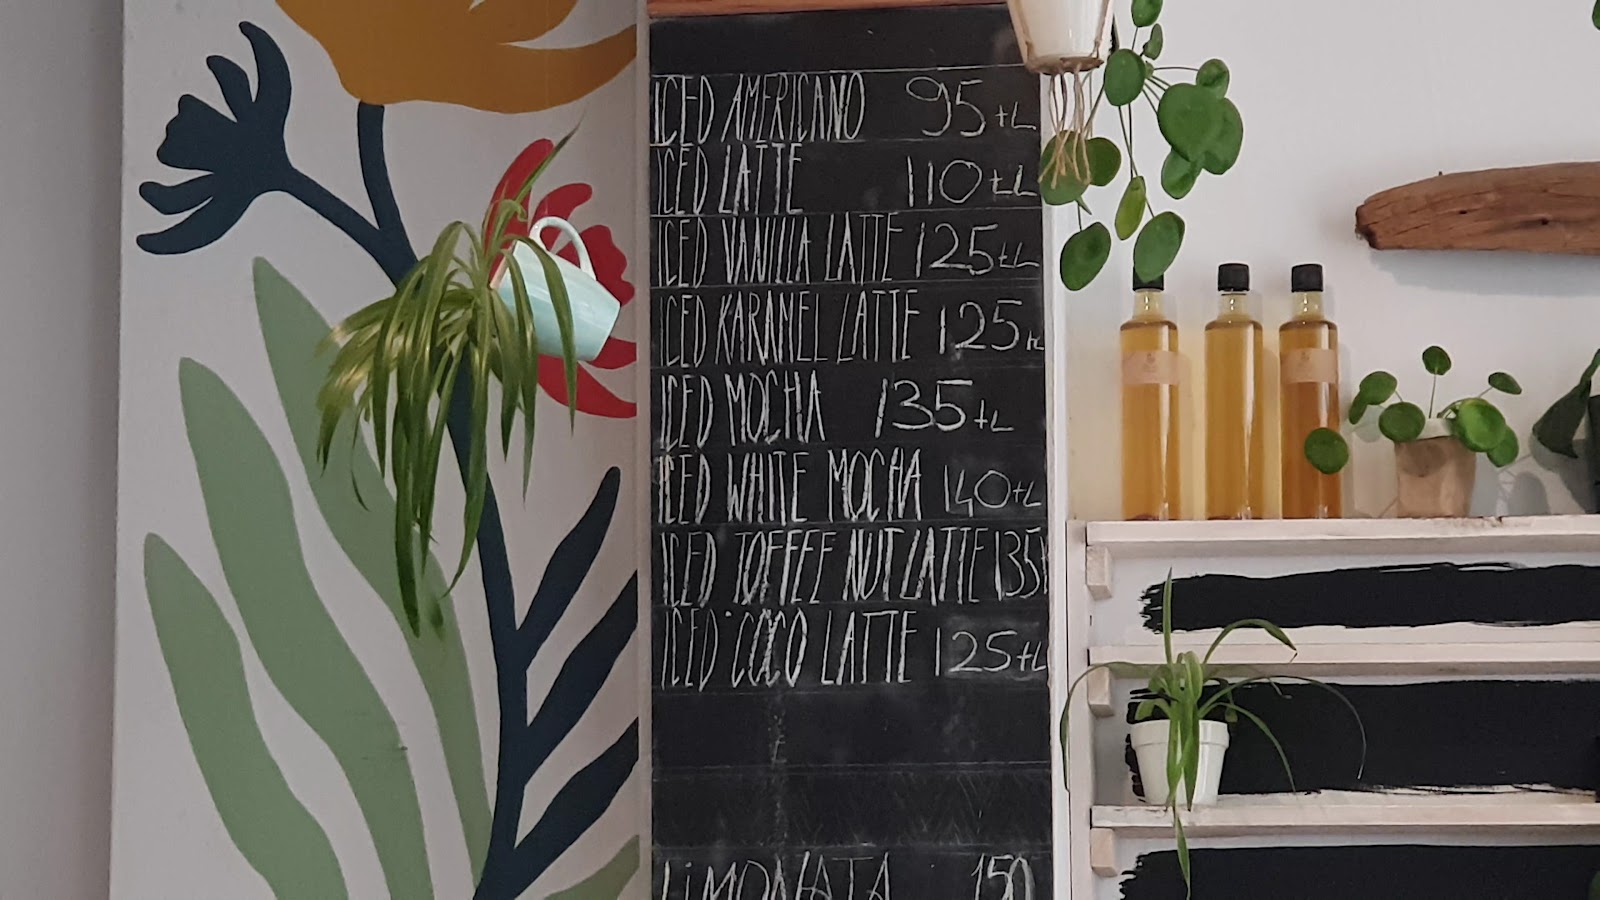 ICED AMERICANO 95 tL
ICED LATTE 110 tL
ICED VANILLA LATTE 125 tL
ICED KARAMEL LATTE 125 tL
ICED MOCHA 135 tL
ICED WHITE MOCHA 140 tL
ICED TOFFEE NUT LATTE 135 t
ICED COCO LATTE 125 tL
LiMONATA 150